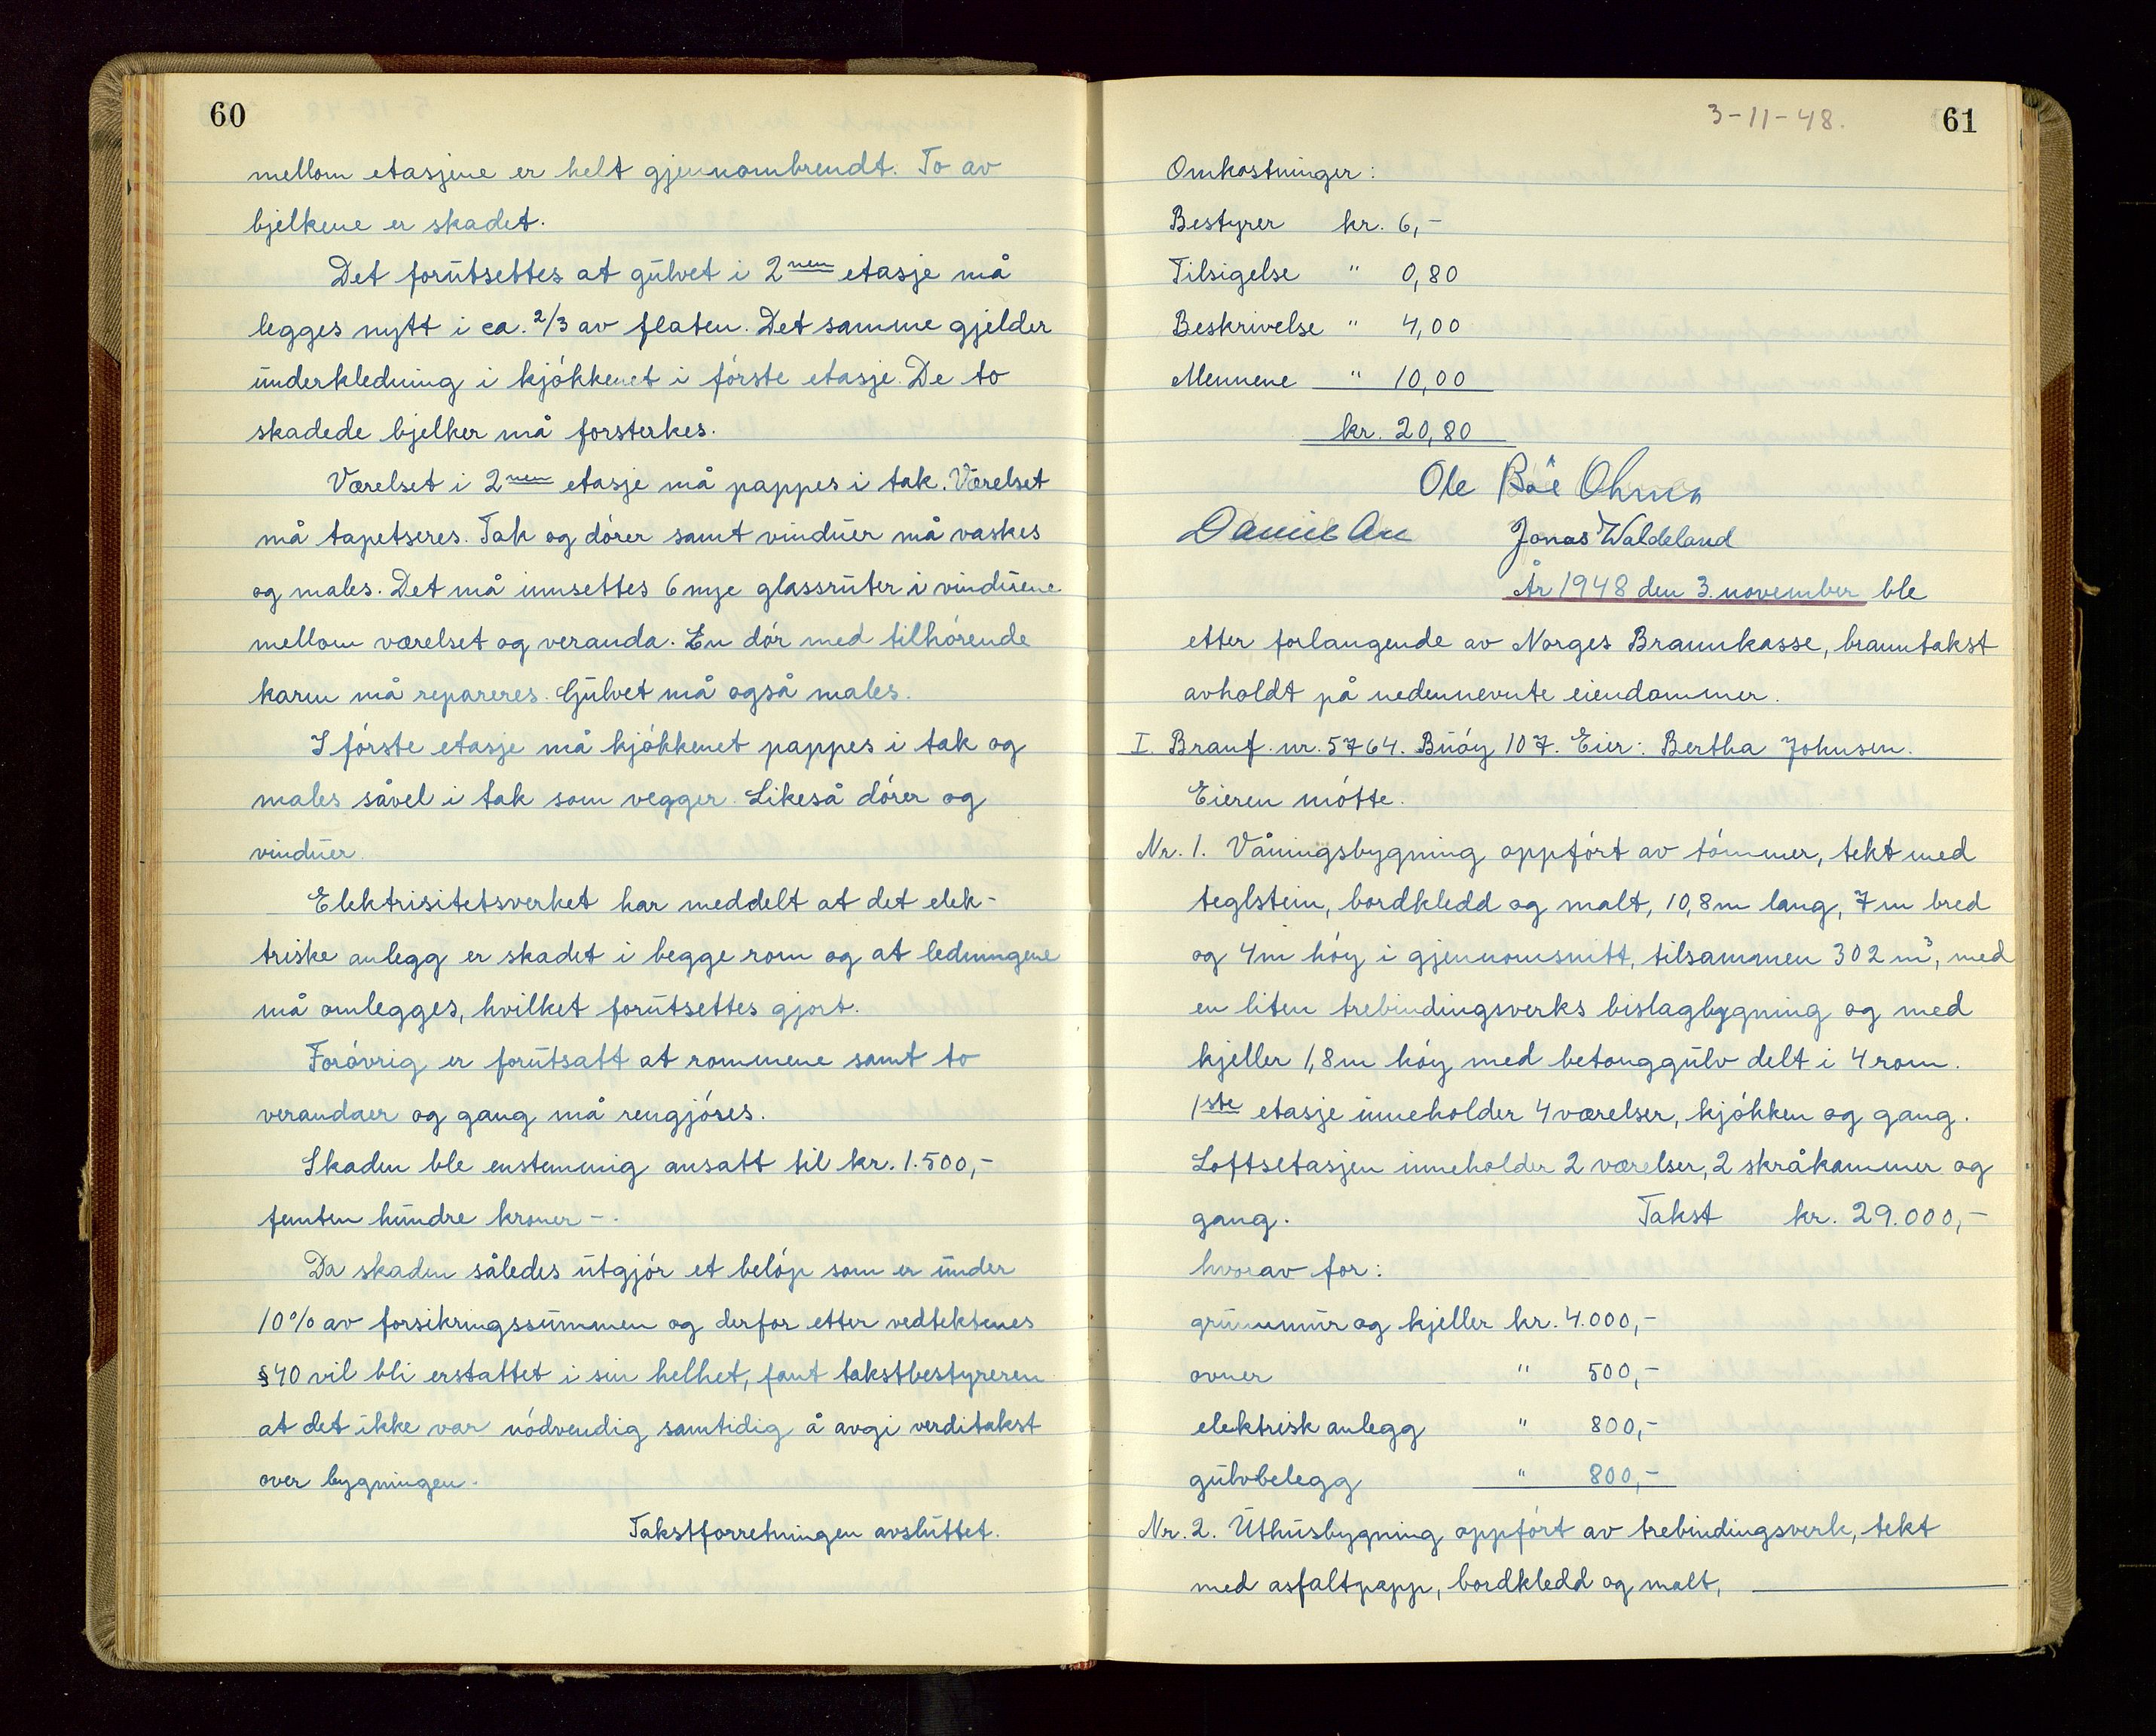 60
mellom etasjene er helt gjennombrendt. To av
bjelkene er skadet.
Det forutsettes at gulvet i 2nen etasje må
legges nytt i ca. 2/3 av flaten. Det samme gjelder
underkledning i kjókkenet i fórste etasje. De to
skadede bjelker må forsterkes.
Værelset i 2nen etasje må pappes i tak. Værelset
må tapetseres. Tak og dórer samt vinduer må vaskes
og males. Det må innsettes 6 nye glassruter i vinduene
mellom værelset og veranda. En dór med tilhórende
karm må repareres. Gulvet må også males.
I fórste etasje må kjókkenet pappes i tak og
males såvel i tak som vegger. Likeså dórer og
vinduer.
Elektrisitetsverket har meddelt at det elek-
triske anlegg er skadet i begge rom og at ledningene
må omlegges, hvilket forutsettes gjort.
Foróvrig er forutsatt at rommene samt to
verandaer og gang må rengjóres.
Skaden ble enstemmig ansatt til kr. 1.500,-
femten hundre kroner -.
Da skaden således utgjór et belóp som er under
10% av forsikringssummen og derfor etter vedtektenes
§40 vil bli erstattet i sin helhet, fant takstbestyreren
at det ikke var nódvendig samtidig å avgi verditakst
over bygningen.
Takstforretningen avsluttet.
3-11-48.
61
Omkostninger:
Bestyrer kr. 6,-
Tilsigelse " 0,80
Beskrivelse " 4,00
Mennene " 10,00
kr. 20,80
Ole Böe
Jonas Waldeland
År 1948 den 3. november ble
etter forlangende av Norges Brannkasse, branntakst
avholdt på nedennevnte eiendommer.
I. Branf. nr. 5764. Buóy 107. Eier: Bertha Johnsen.
Eieren mótte.
Nr. 1. Våningsbygning oppfórt av tómmer, tekt med
teglstein, bordkledd og malt, 10,8m lang, 7m bred
og 4m hóy i gjennomsnitt, tilsammen 302 m³, med
en liten trebindingsverks bislagbygning og med
kjeller 1,8m hóy med betonggulv delt i 4 rom.
1ste etasje inneholder 4 værelser, kjókken og gang.
Loftsetasjen inneholder 2 værelser, 2 skråkammer og
gang. Takst kr. 29.000,-
hvorav for:
grunnmur og kjeller kr. 4.000,-
ovner " 500,-
elektrisk anlegg " 800,-
gulvbelegg " 800,-
Nr. 2. Uthusbygning oppfórt av trebindingsverk, tekt
med asfaltpapp, bordkledd og malt,